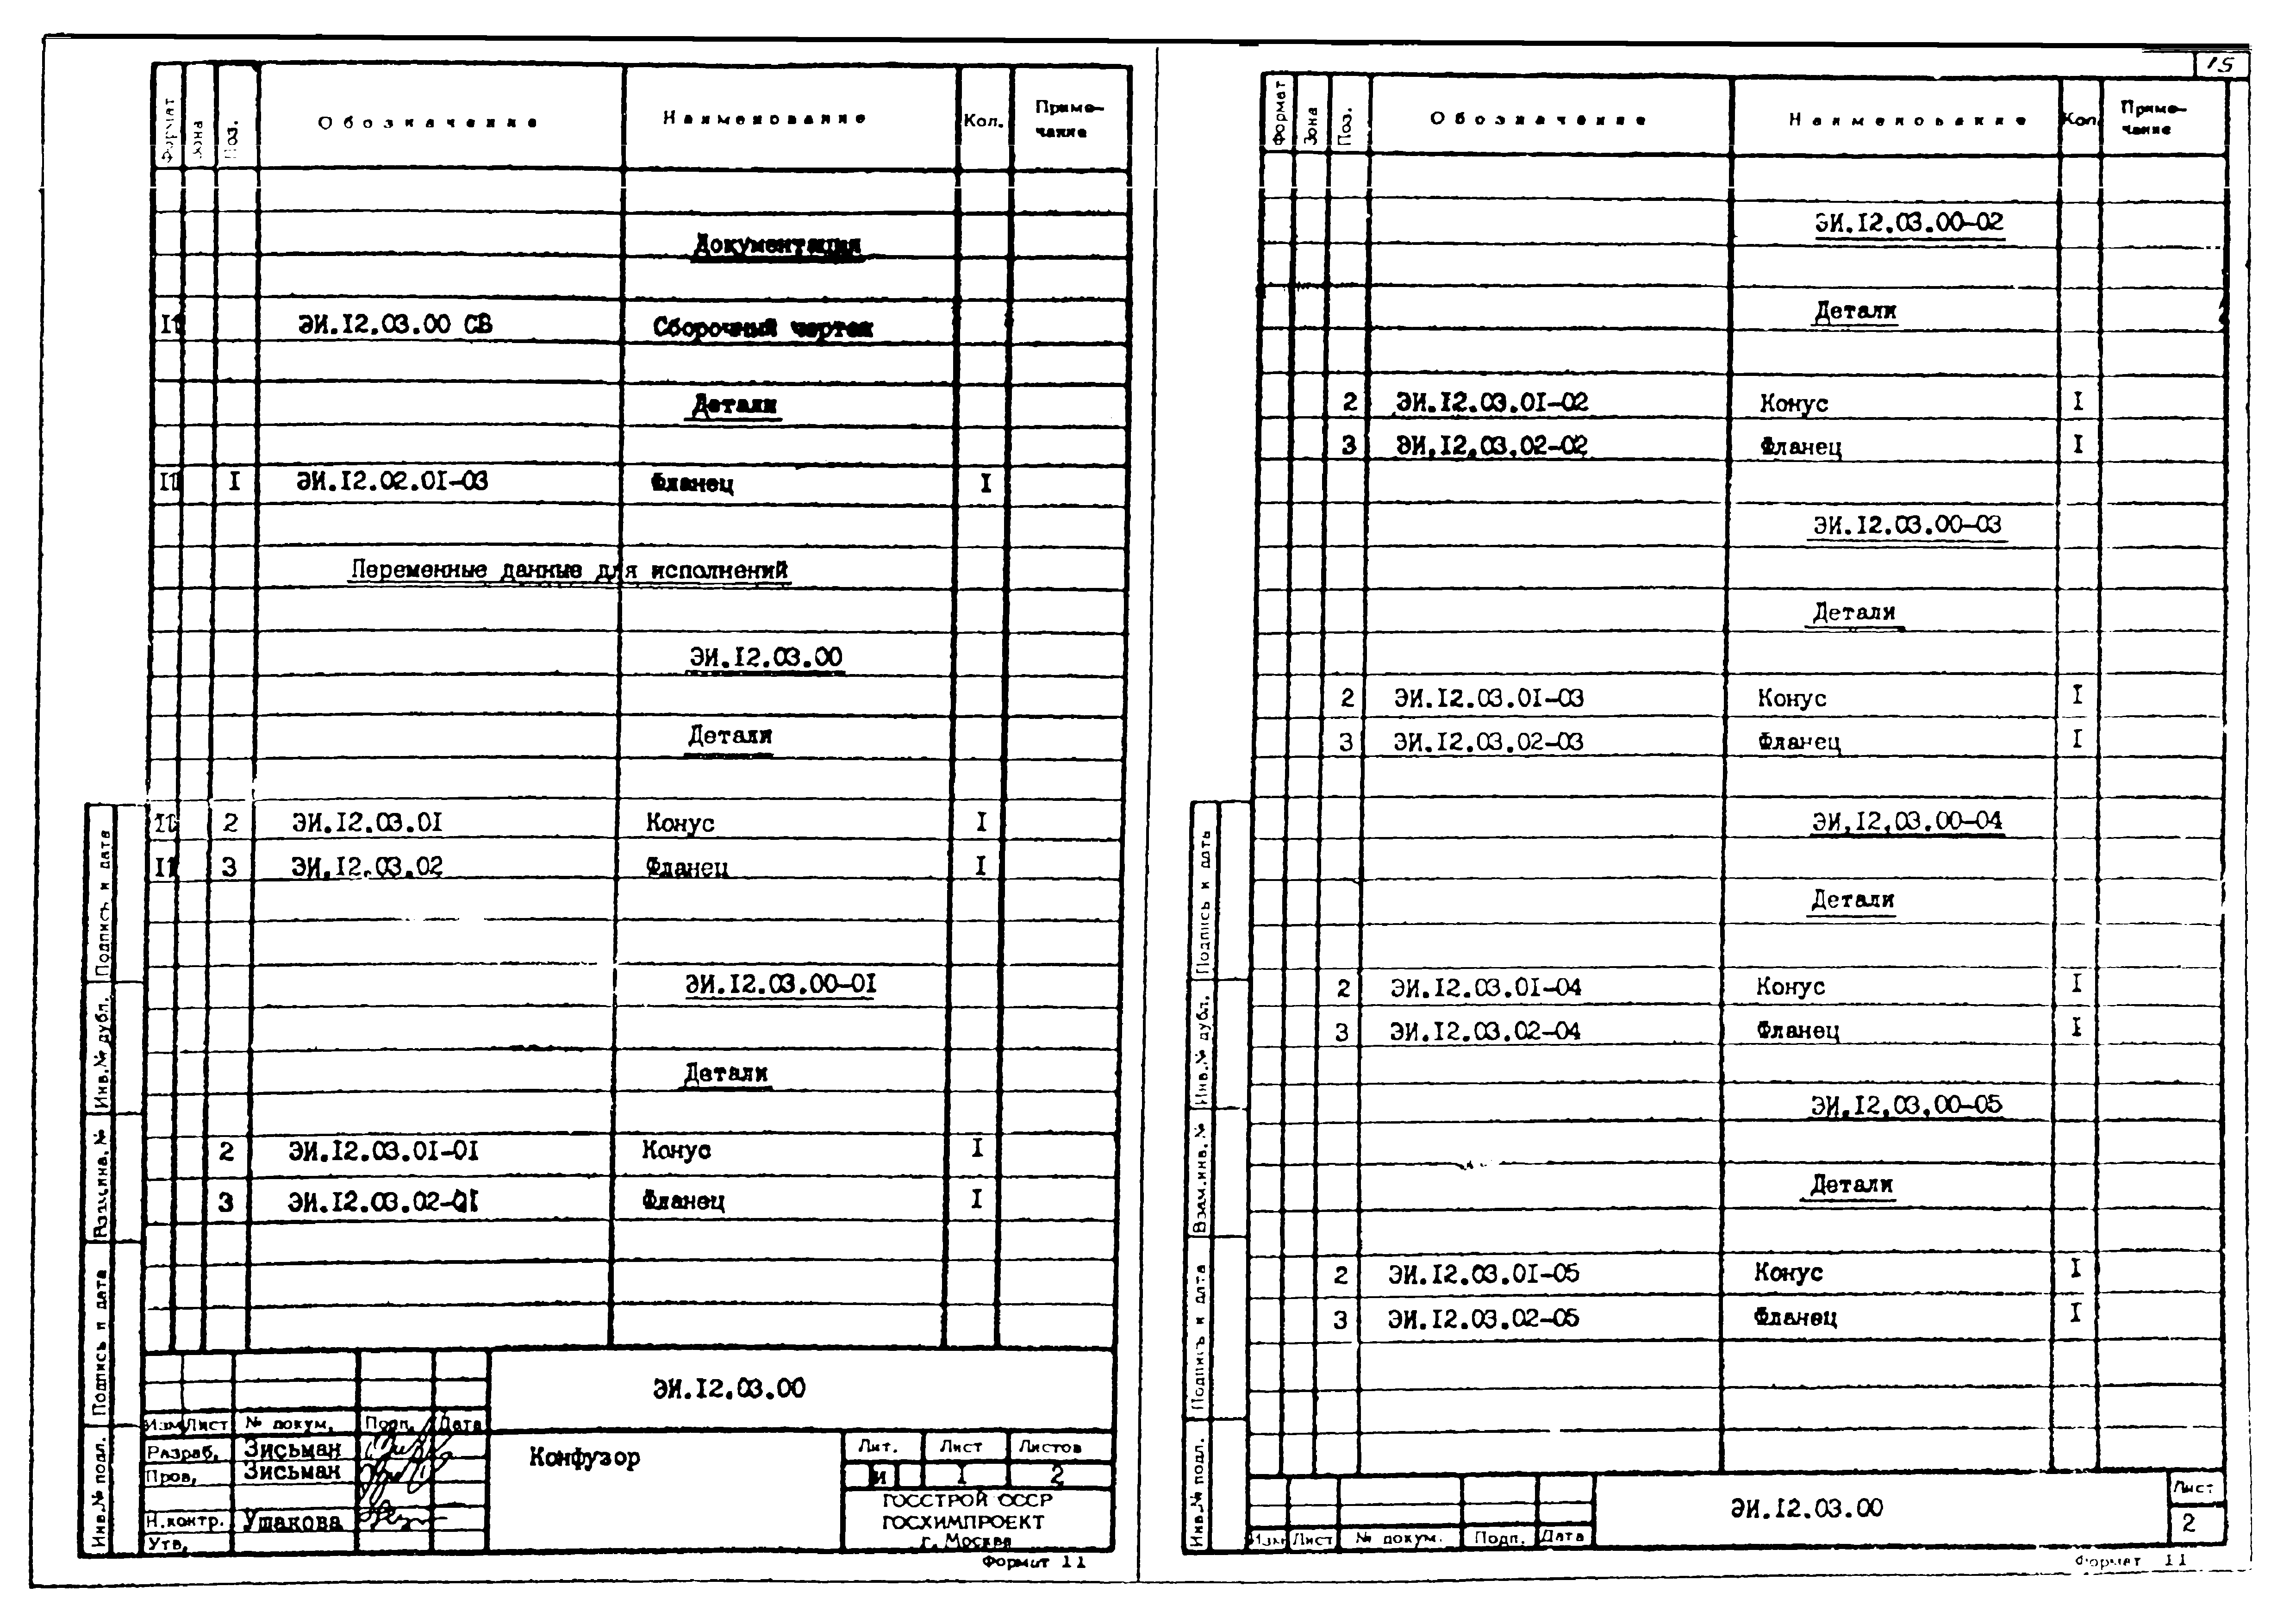 Формат Зона Поз. Обозначение Наименование Кол. Приме-
чание
Документация
11 ЭИ.12.03.00 СБ Сборочный чертеж
Детали
11 1 ЭИ.12.02.01-03 Фланец 1
Переменные данные для исполнений
ЭИ.12.03.00
Детали
11 2 ЭИ.12.03.01 Конус 1
11 3 ЭИ.12.03.02 Фланец 1
ЭИ.12.03.00-01
Детали
2 ЭИ.12.03.01-01 Конус 1
3 ЭИ.12.03.02-01 Фланец 1
Подпись и дата
Инв.№ дубл.
Взам.инв.№
Подпись и дата
Инв.№ подл.
ЭИ.12.03.00
Изм Лист № докум. Подп. Дата
Разраб. Зисьман
Пров. Зисьман
Н.контр. Ушакова
Утв.
Конфузор
Лит. Лист Листов
И 1 2
ГОССТРОЙ СССР
ГОСХИМПРОЕКТ
г. Москва
Формат 11
15
Формат Зона Поз. Обозначение Наименование Кол. Приме-
чание
ЭИ.12.03.00-02
Детали
2 ЭИ.12.03.01-02 Конус 1
3 ЭИ.12.03.02-02 Фланец 1
ЭИ.12.03.00-03
Детали
2 ЭИ.12.03.01-03 Конус 1
3 ЭИ.12.03.02-03 Фланец 1
ЭИ.12.03.00-04
Детали
2 ЭИ.12.03.01-04 Конус 1
3 ЭИ.12.03.02-04 Фланец 1
ЭИ.12.03.00-05
Детали
2 ЭИ.12.03.01-05 Конус 1
3 ЭИ.12.03.02-05 Фланец 1
Подпись и дата
Инв.№ дубл.
Взам.инв.№
Подпись и дата
Инв.№ подл.
Изм Лист № докум. Подп. Дата
ЭИ.12.03.00
Лист
2
Формат 11